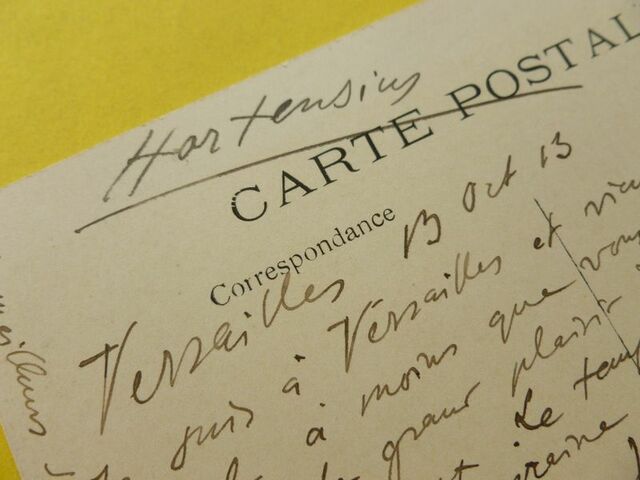 Hortensius
CARTE POSTAL
Correspondance
Versailles 13 Oct 13
suis à Versailles et
à moins que vous
grand plaisir
Le temps